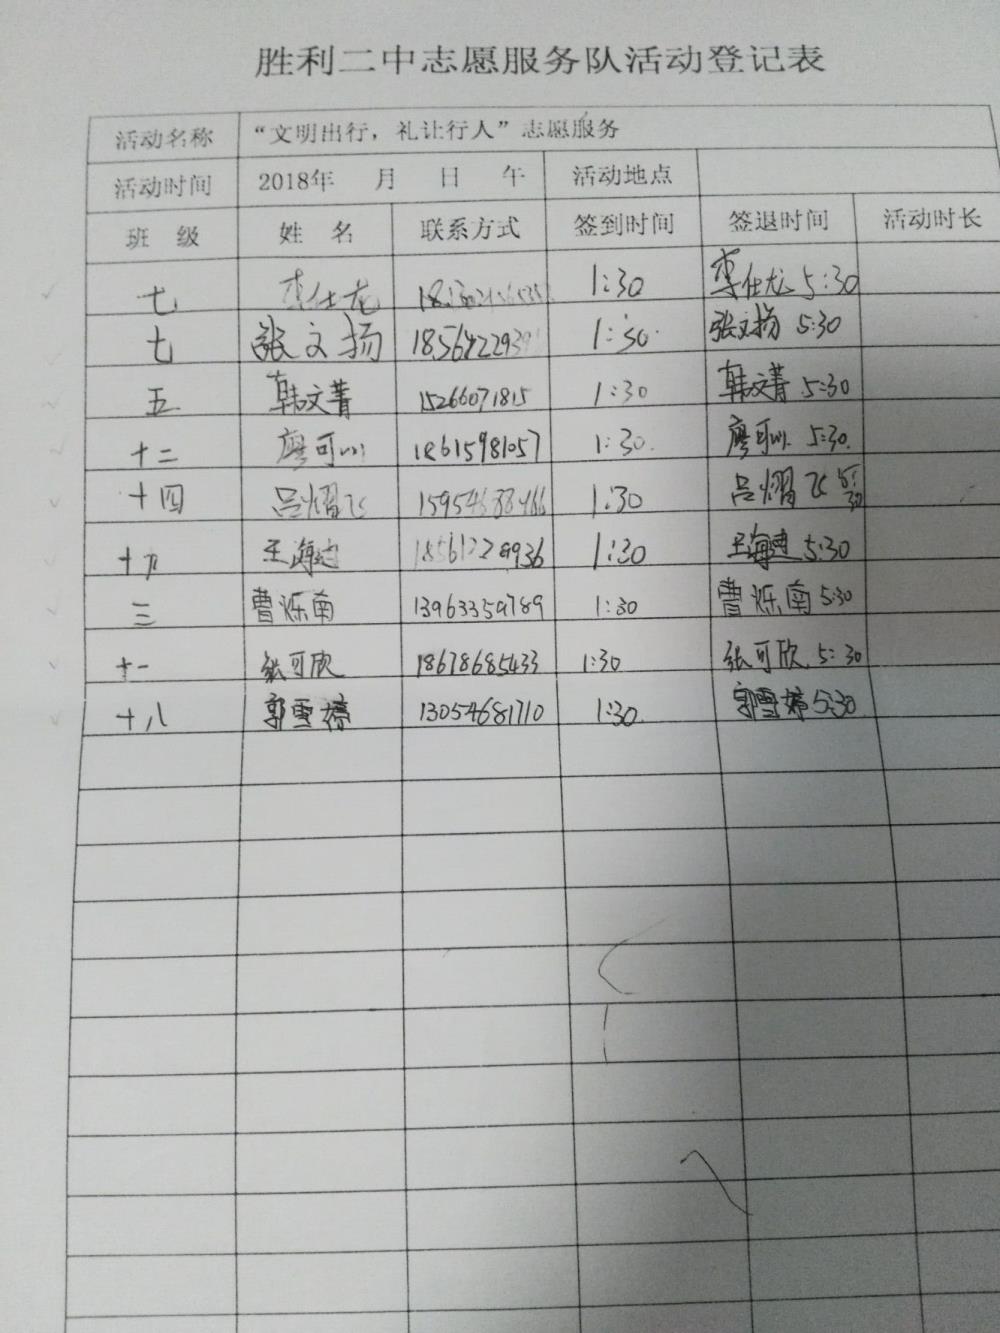 胜利二中志愿服务队活动登记表
活动名称 “文明出行，礼让行人”志愿服务
活动时间 2018年 月 日 午 活动地点
班 级 姓 名 联系方式 签到时间 签退时间 活动时长
七 李仕龙 1:30 李仕龙 5:30
七 张文扬 1:30 张文扬 5:30
五 韩文菁 15266071815 1:30 韩文菁 5:30
十二 廖可 18615981057 1:30 廖可 5:30
十四 吕熠飞 1:30 吕熠飞 5:30
十九 王海 1:30 王海 5:30
三 曹烁南 13963359789 1:30 曹烁南 5:30
十一 张可欣 18678685433 1:30 张可欣 5:30
十八 郭雪婷 13054681710 1:30 郭雪婷 5:30